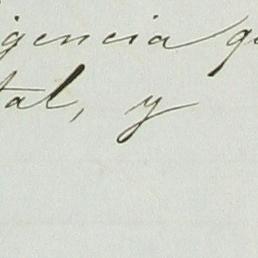 igencia q
tal, y